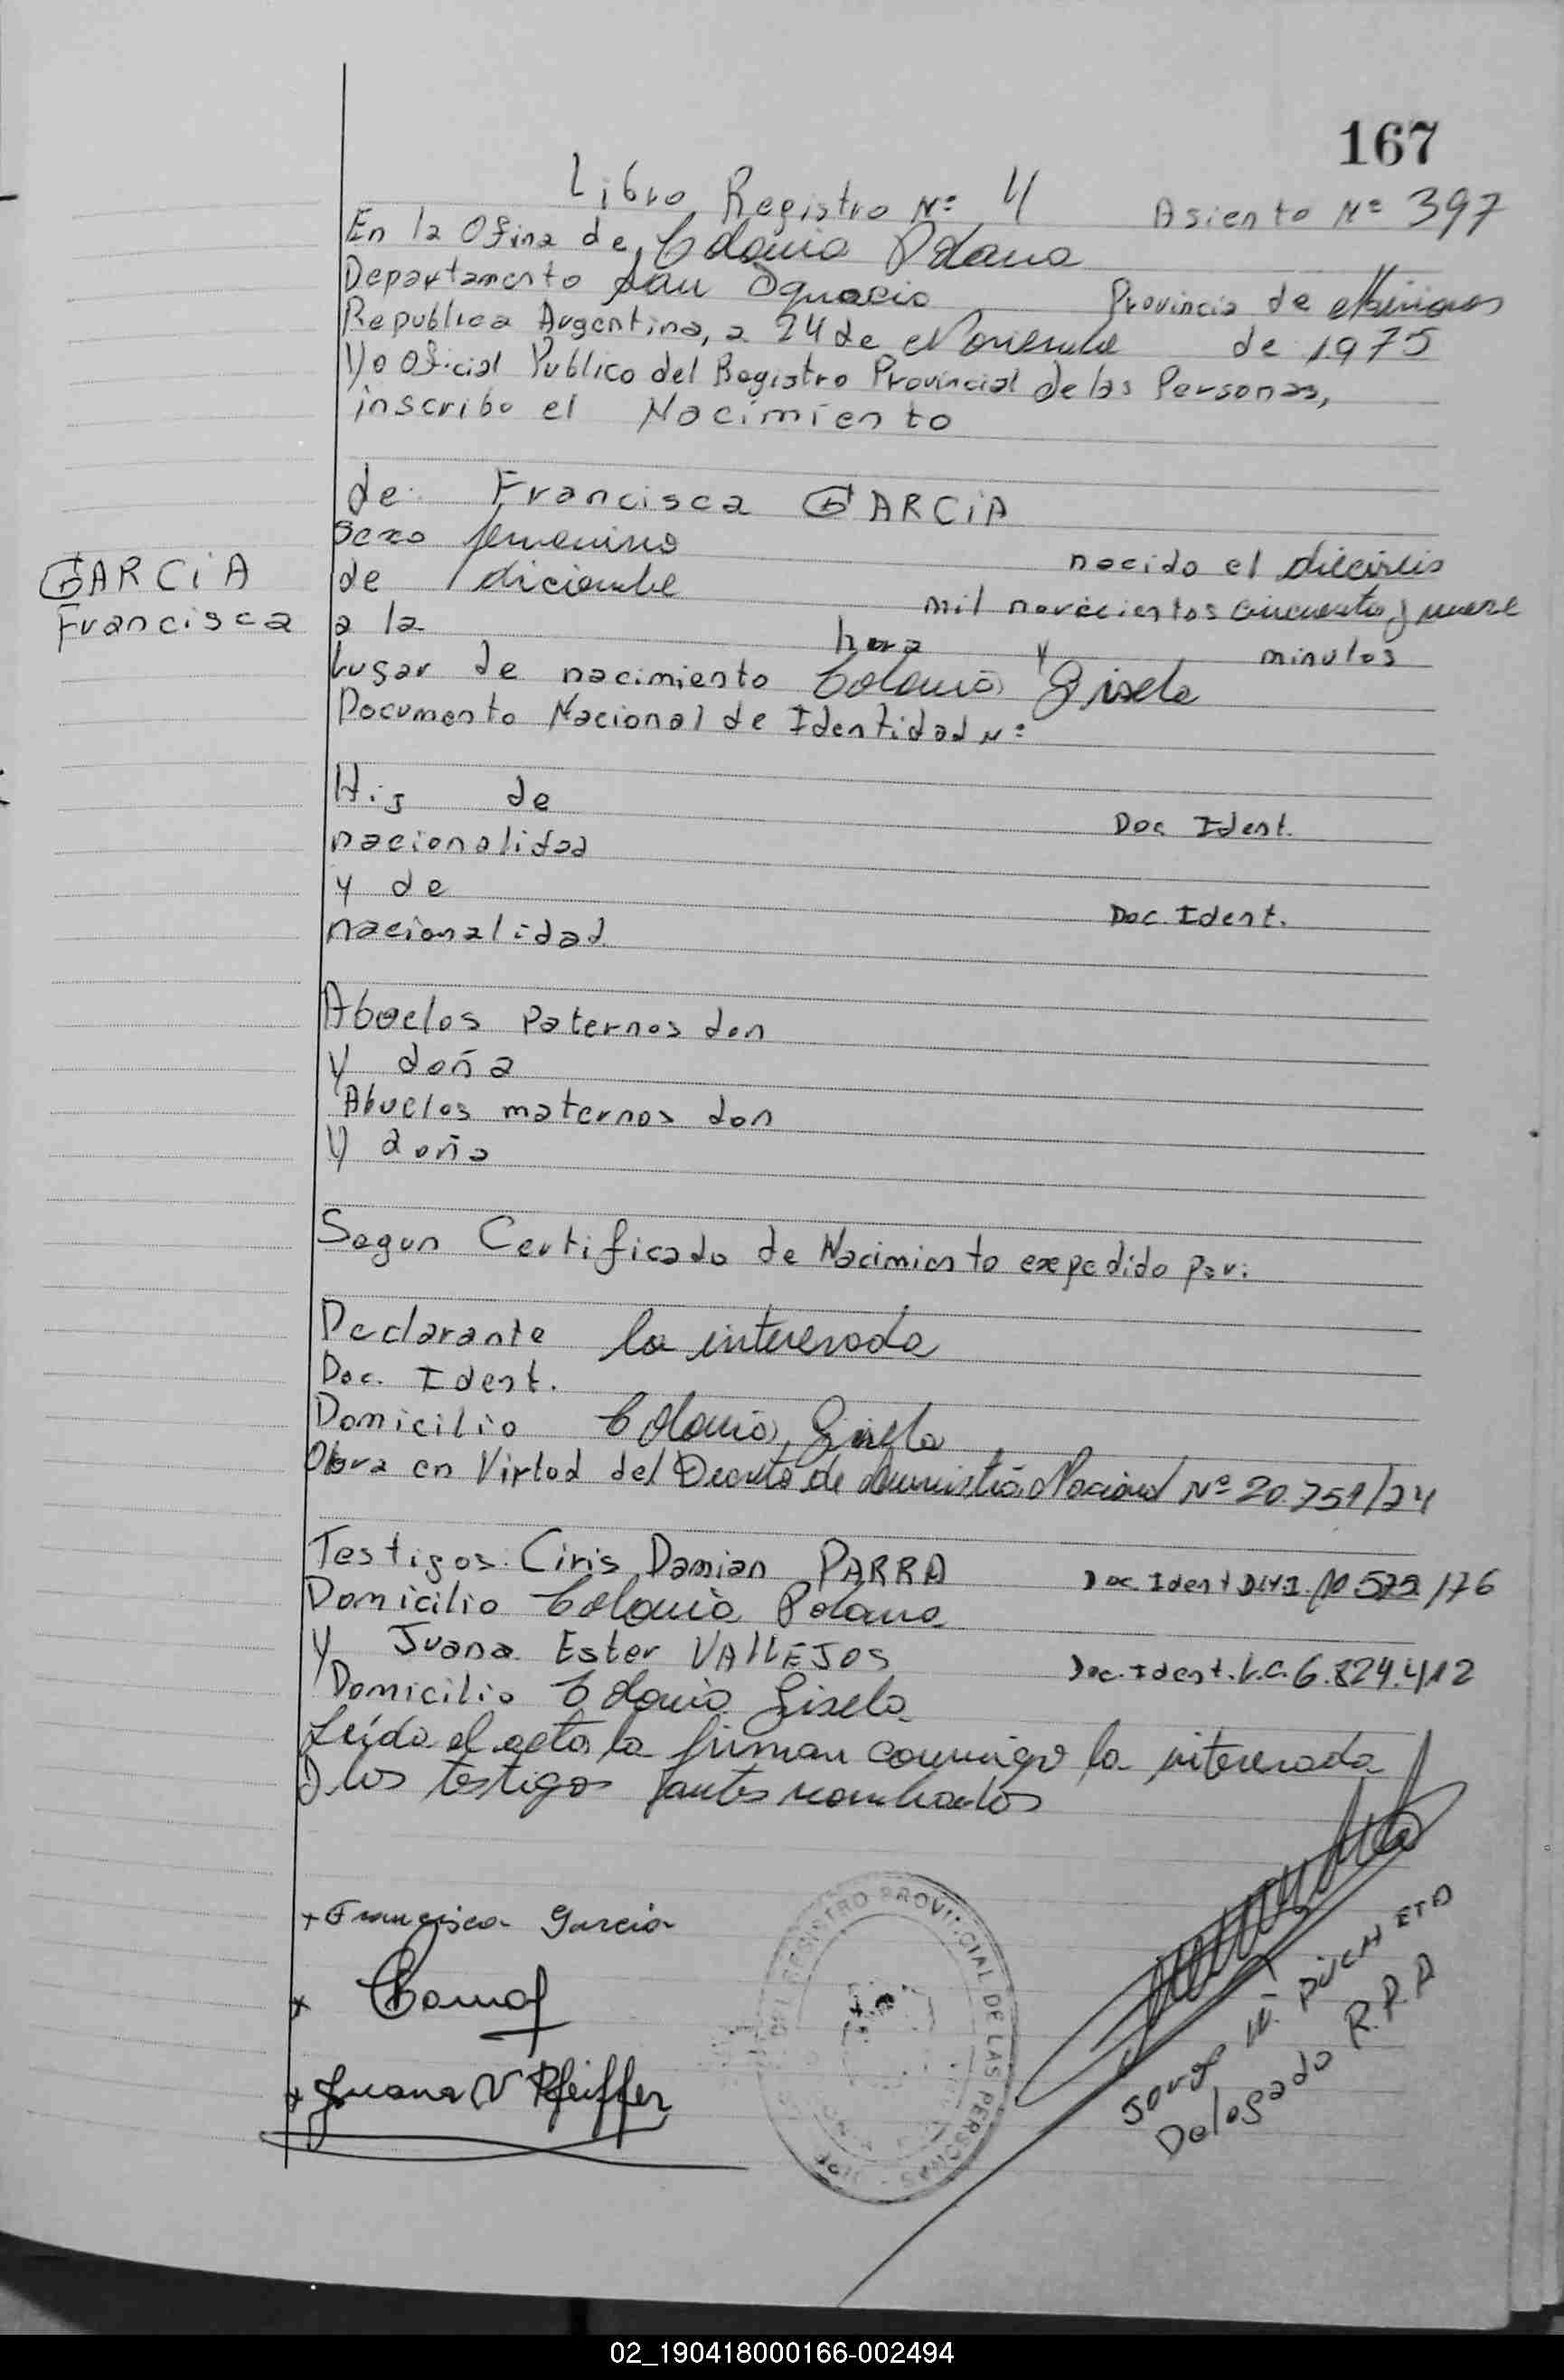 167
Libro Registro Nº 4
Asiento Nº 397
En la Ofina de Colonia Polana
Departamento San Ignacio Provincia de Misiones
Republica Argentina, a 24 de Noviembre de 1975
Yo Oficial Publico del Registro Provincial de las Personas,
inscribo el Nacimiento
de Francisca GARCIA
Sexo femenino nacido el dieciseis
de diciembre mil novecientos cincuenta y nueve
a la hora y minutos
Lugar de nacimiento Colonia Gisela
Documento Nacional de Identidad Nº
GARCIA
Francisca
Hij de Doc Ident.
nacionalidad
y de Doc. Ident.
nacionalidad
Abuelos Paternos don
y doña
Abuelos maternos don
y doña
Segun Certificado de Nacimiento expedido por:
Declarante la interesada
Doc. Ident.
Domicilio Colonia Gisela
Obra en Virtud del Decreto de Amnistia Nacional Nº 20.751/74
Testigos: Ciris Damian PARRA Doc Ident D.N.I.
Domicilio Colonia Polana
y Juana Ester VALLEJOS Doc. Ident. L.C. 6.824.412
Domicilio Colonia Gisela
Leida el acta la firman conmigo la interesada
y los testigos antes nombrados
+ Francisca Garcia
x
x Juana V Pfeiffer
DEL REGISTRO PROVINCIAL DE LAS PERSONAS
Jorge
Delegado R.P.P
02_190418000166-002494